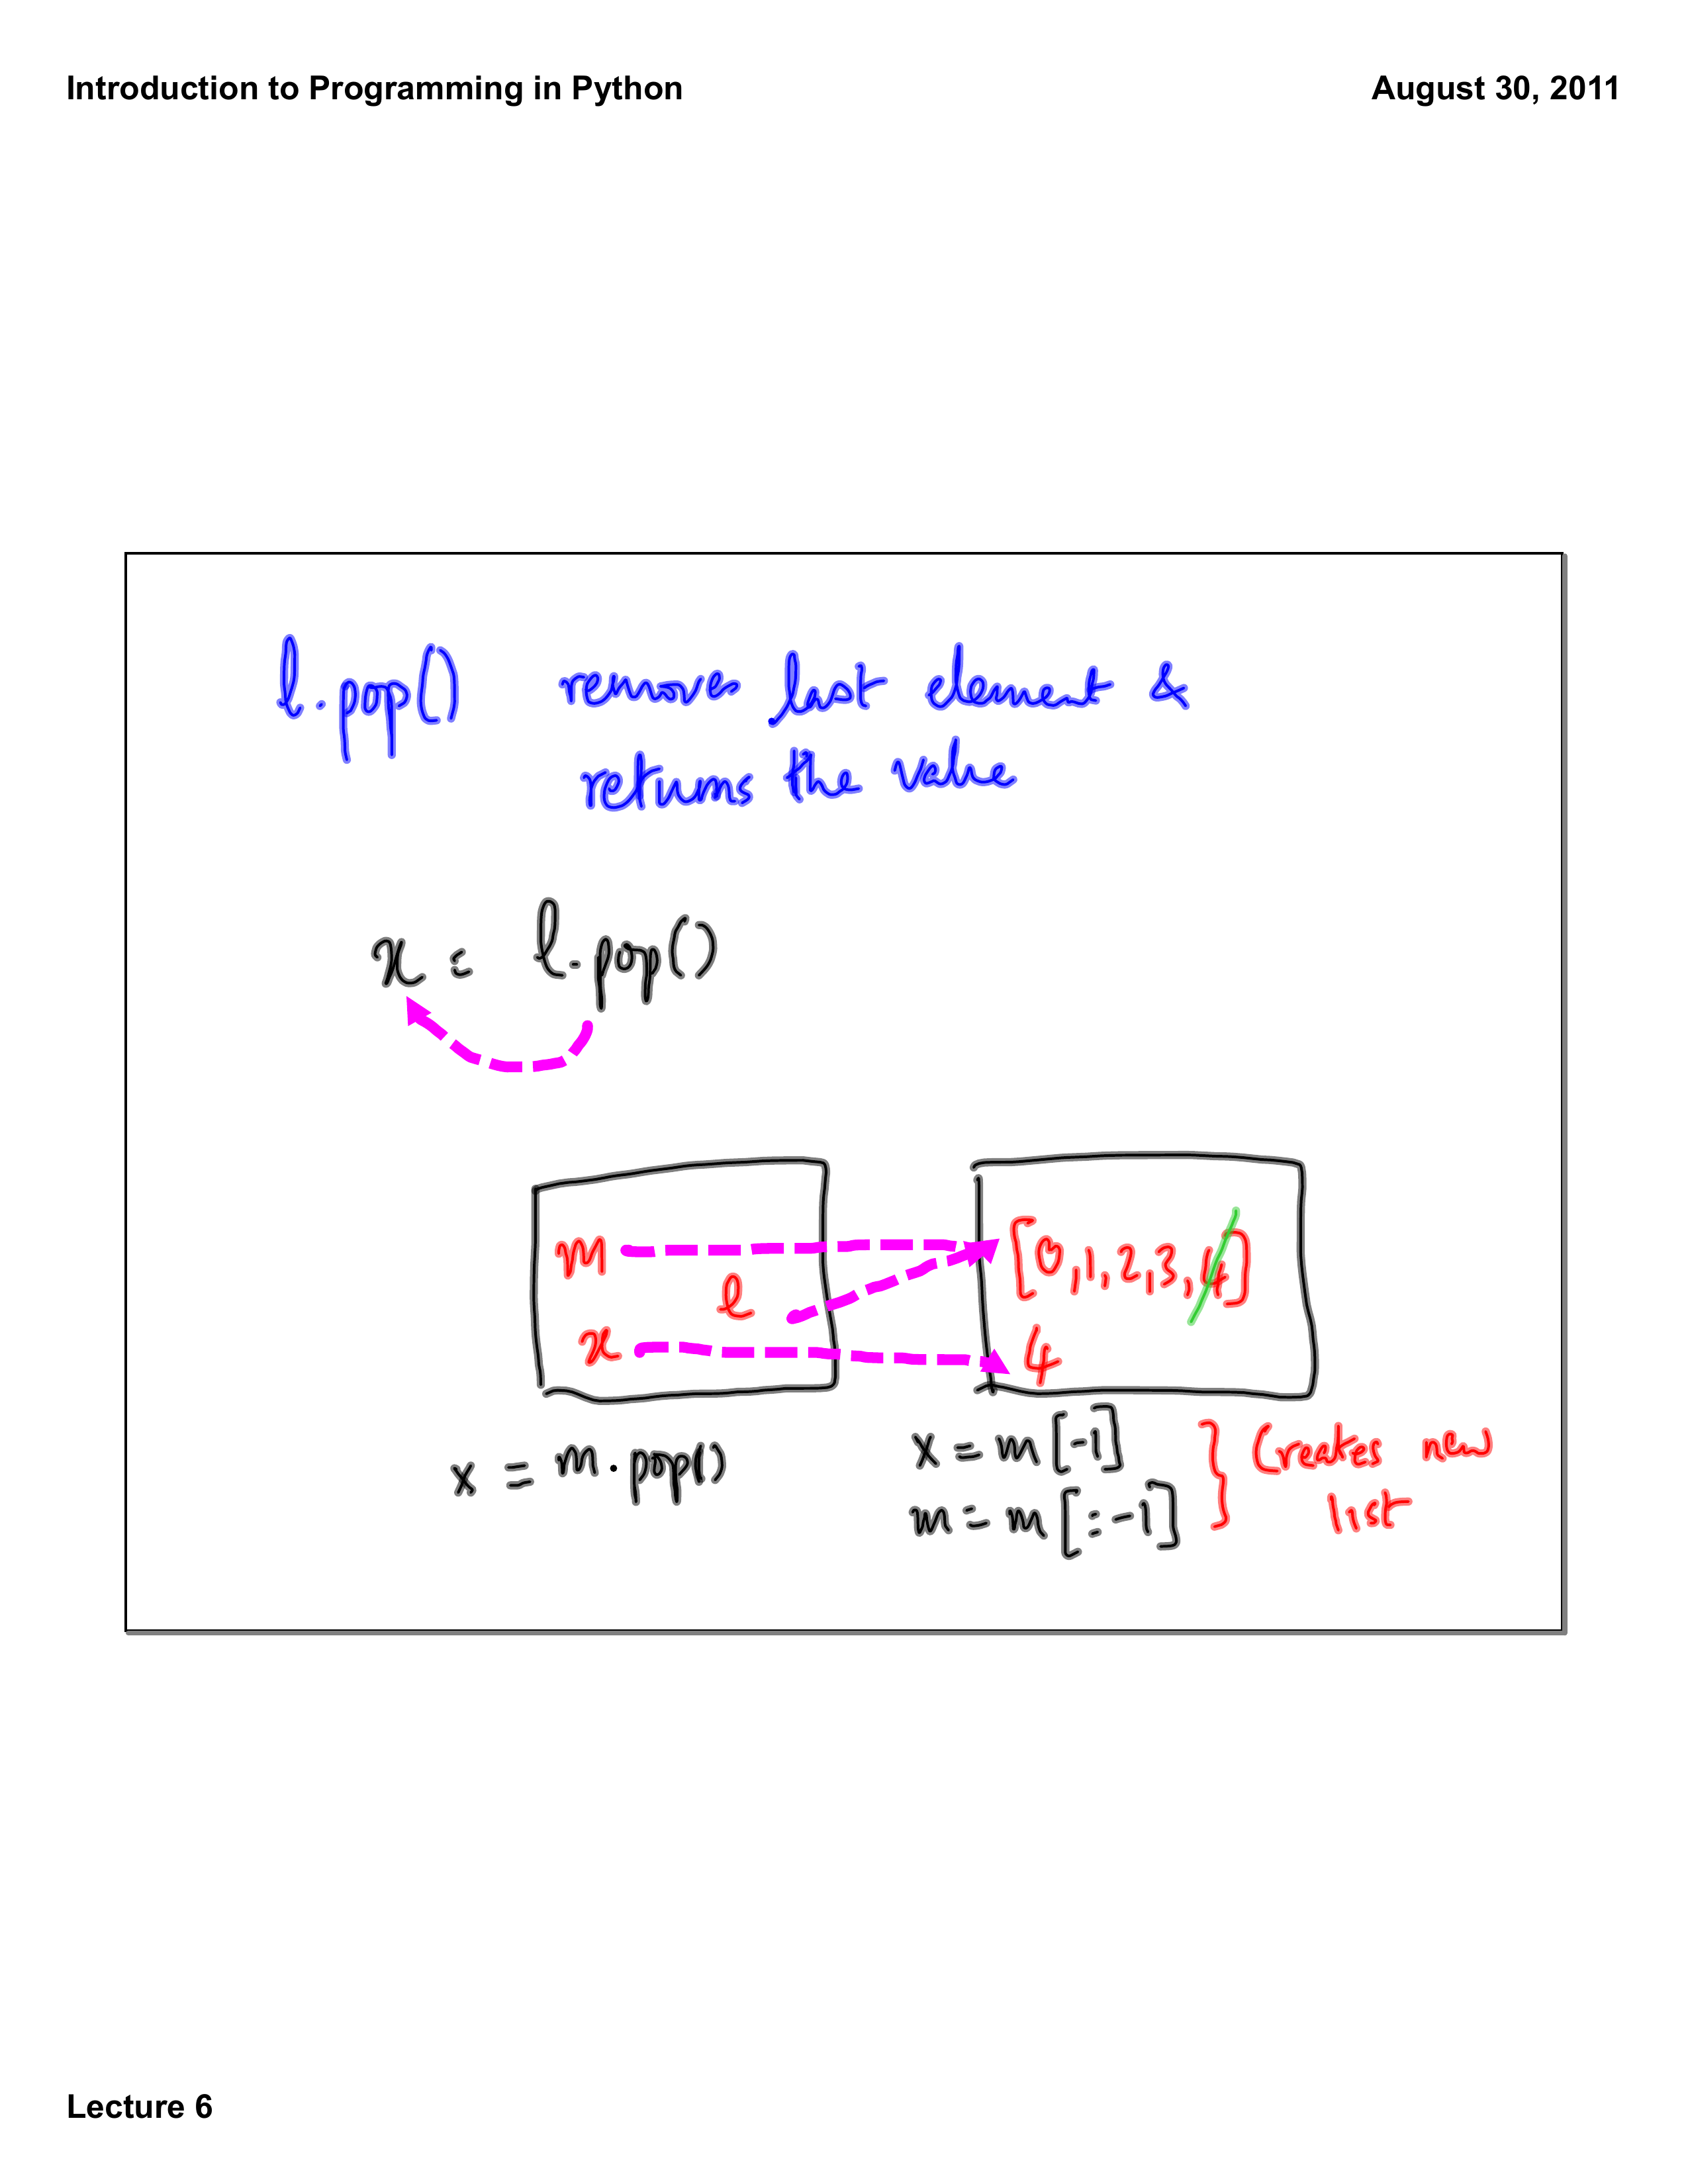 Introduction to Programming in Python August 30, 2011
l.pop() removes last element &
returns the value
x = l.pop()
m [0,1,2,3,4]
l
x 4
x = m.pop() x = m[-1] } Creates new
m = m[:-1] list
Lecture 6